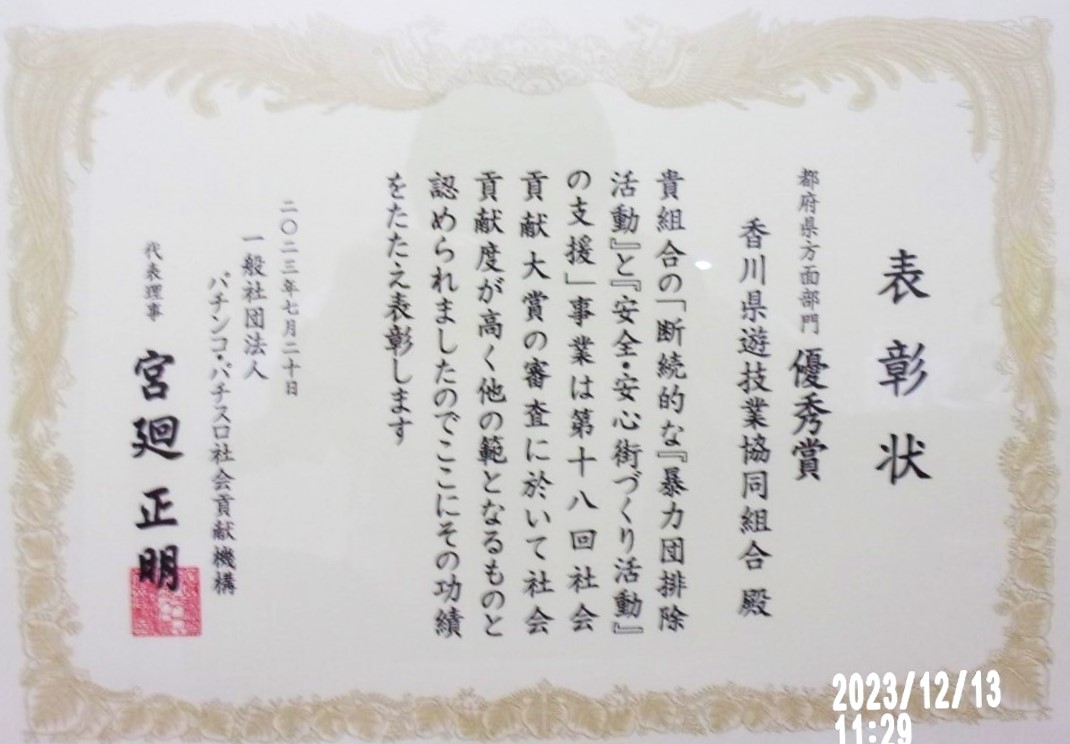 表彰状
都府県方面部門 優秀賞
香川県遊技業協同組合 殿
貴組合の「断続的な『暴力団排除
活動』と『安全・安心街づくり活動』
の支援」事業は第十八回社会
貢献大賞の審査に於いて社会
貢献度が高く他の範となるものと
認められましたのでここにその功績
をたたえ表彰します
二〇二三年七月二十日
一般社団法人
パチンコ・パチスロ社会貢献機構
代表理事 宮廻正明
2023/12/13
11:29